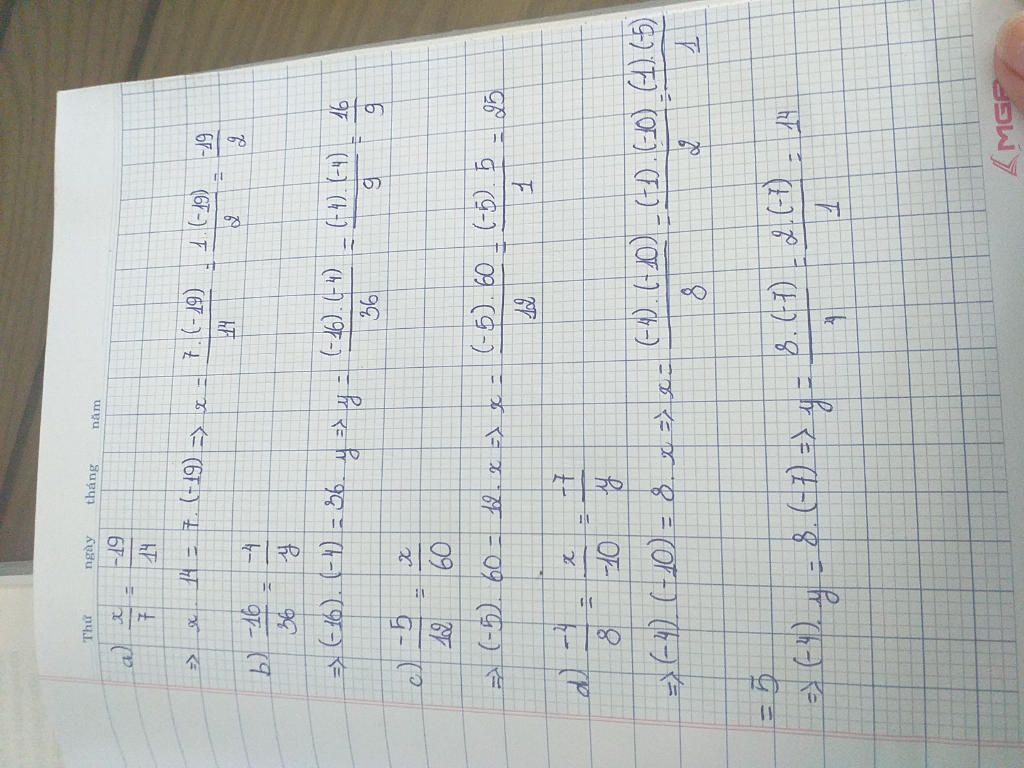 Thứ ngày tháng năm
a) x/7 = -19/14
=> x . 14 = 7 . (-19) => x = 7 . (-19)/14 = 1 . (-19)/2 = -19/2
b) -16/36 = -4/y
=> (-16) . (-4) = 36 . y => y = (-16) . (-4)/36 = (-4) . (-4)/9 = 16/9
c) -5/12 = x/60
=> (-5) . 60 = 12 . x => x = (-5) . 60/12 = (-5) . 5/1 = 25
d) -4/8 = x/-10 = -7/y
=> (-4) . (-10) = 8 . x => x = (-4) . (-10)/8 = (-1) . (-10)/2 = (-1) . (-5)/1
= 5
=> (-4) . y = 8 . (-7) => y = 8 . (-7)/4 = 2 . (-7)/1 = 14